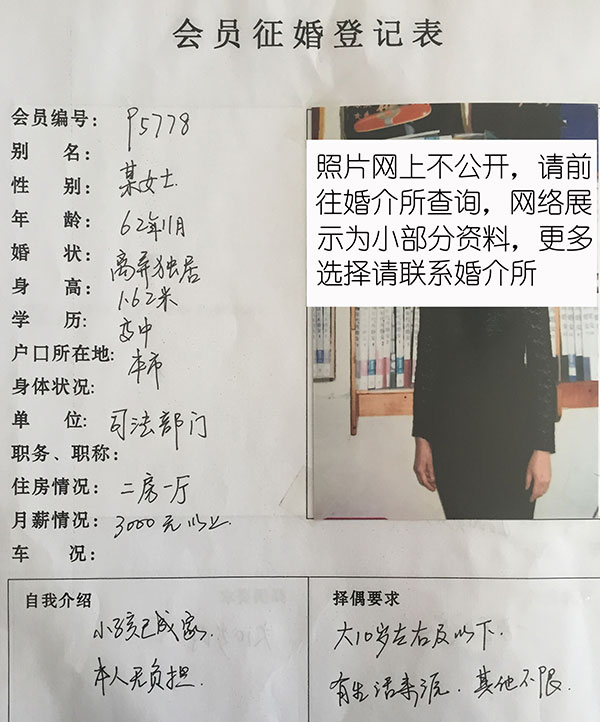 会员征婚登记表
会员编号: P5778
别 名:
性 别: 某女士
年 龄: 62年11月
婚 状: 离异独居
身 高: 1.62米
学 历: 高中
户口所在地: 本市
身体状况:
单 位: 司法部门
职务、职称:
住房情况: 二房一厅
月薪情况: 3000元以上.
车 况:
照片网上不公开，请前
往婚介所查询，网络展
示为小部分资料，更多
选择请联系婚介所
自我介绍
小孩已成家.
本人无负担.
择偶要求
大10岁左右及以下.
有生活来源. 其他不限.